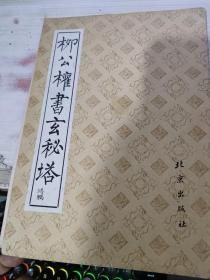 柳公權書玄秘塔
北京出版社